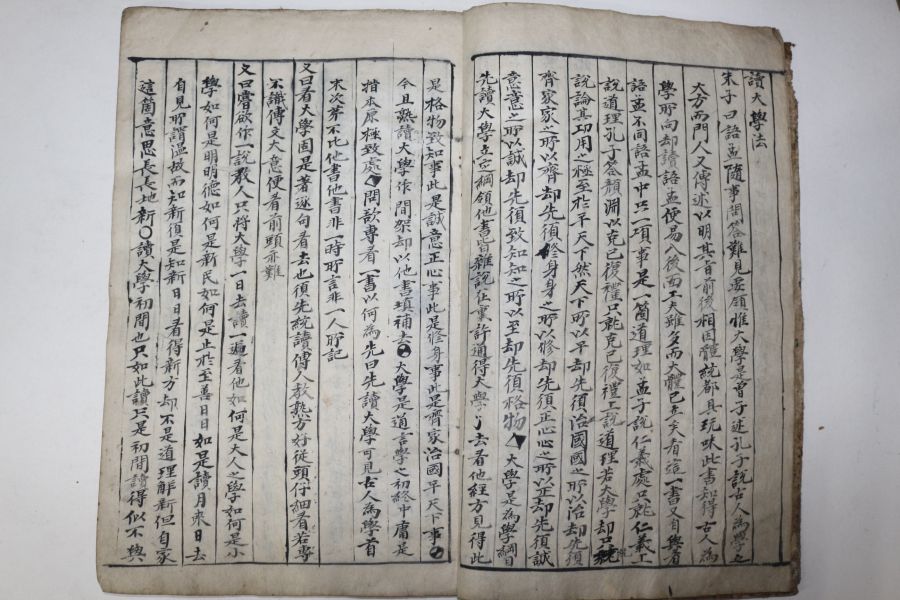 讀大學法
朱子曰語孟隨事問答難見要領惟大學是曾子述孔子說古人為學之
大方而門人又傳述以明其旨前後相因體統都具玩味此書知得古人為
學所向却讀語孟便易入後面工夫雖多而大體已立矣看這一書又自與看
語孟不同語孟中只一項事是一箇道理如孟子說仁義處只就仁義上
說道理孔子答顔淵以克已復禮只就克已復禮上說道理若大學却只統
說論其功用之極至於平天下然天下所以平却先須治國國之所以治却先須
齊家家之所以齊却先須修身身之所以修却先須正心心之所以正却先須誠
意意之所以誠却先須致知知之所以至却先須格物 大學是為學綱目
先讀大學立定綱領他書皆雜說在裏許通得大學了去看他經方見得此
是格物致知事此是誠意正心事此是修身事此是齊家治國平天下事
今且熟讀大學作間架却以他書填補去 大學是通言學之初終中庸是
指本原極致處 問欲專看一書以何為先曰先讀大學可見古人為學首
末次第不比他書他書非一時所言非一人所記
又曰看大學固是著逐句看去也須先統讀傳文教熟方好從頭仔細看若專
不識傳文大意便看前頭亦難
又曰嘗欲作一說教人只將大學一日去讀一遍看他如何是大人之學如何是小
學如何是明明德如何是新民如何是止於至善日日如是讀月來日去
自見所謂溫故而知新須是知新日日看得新方却不是道理解新但自家
這箇意思長長地新〇讀大學初間也只如此讀只是初間讀得似不與